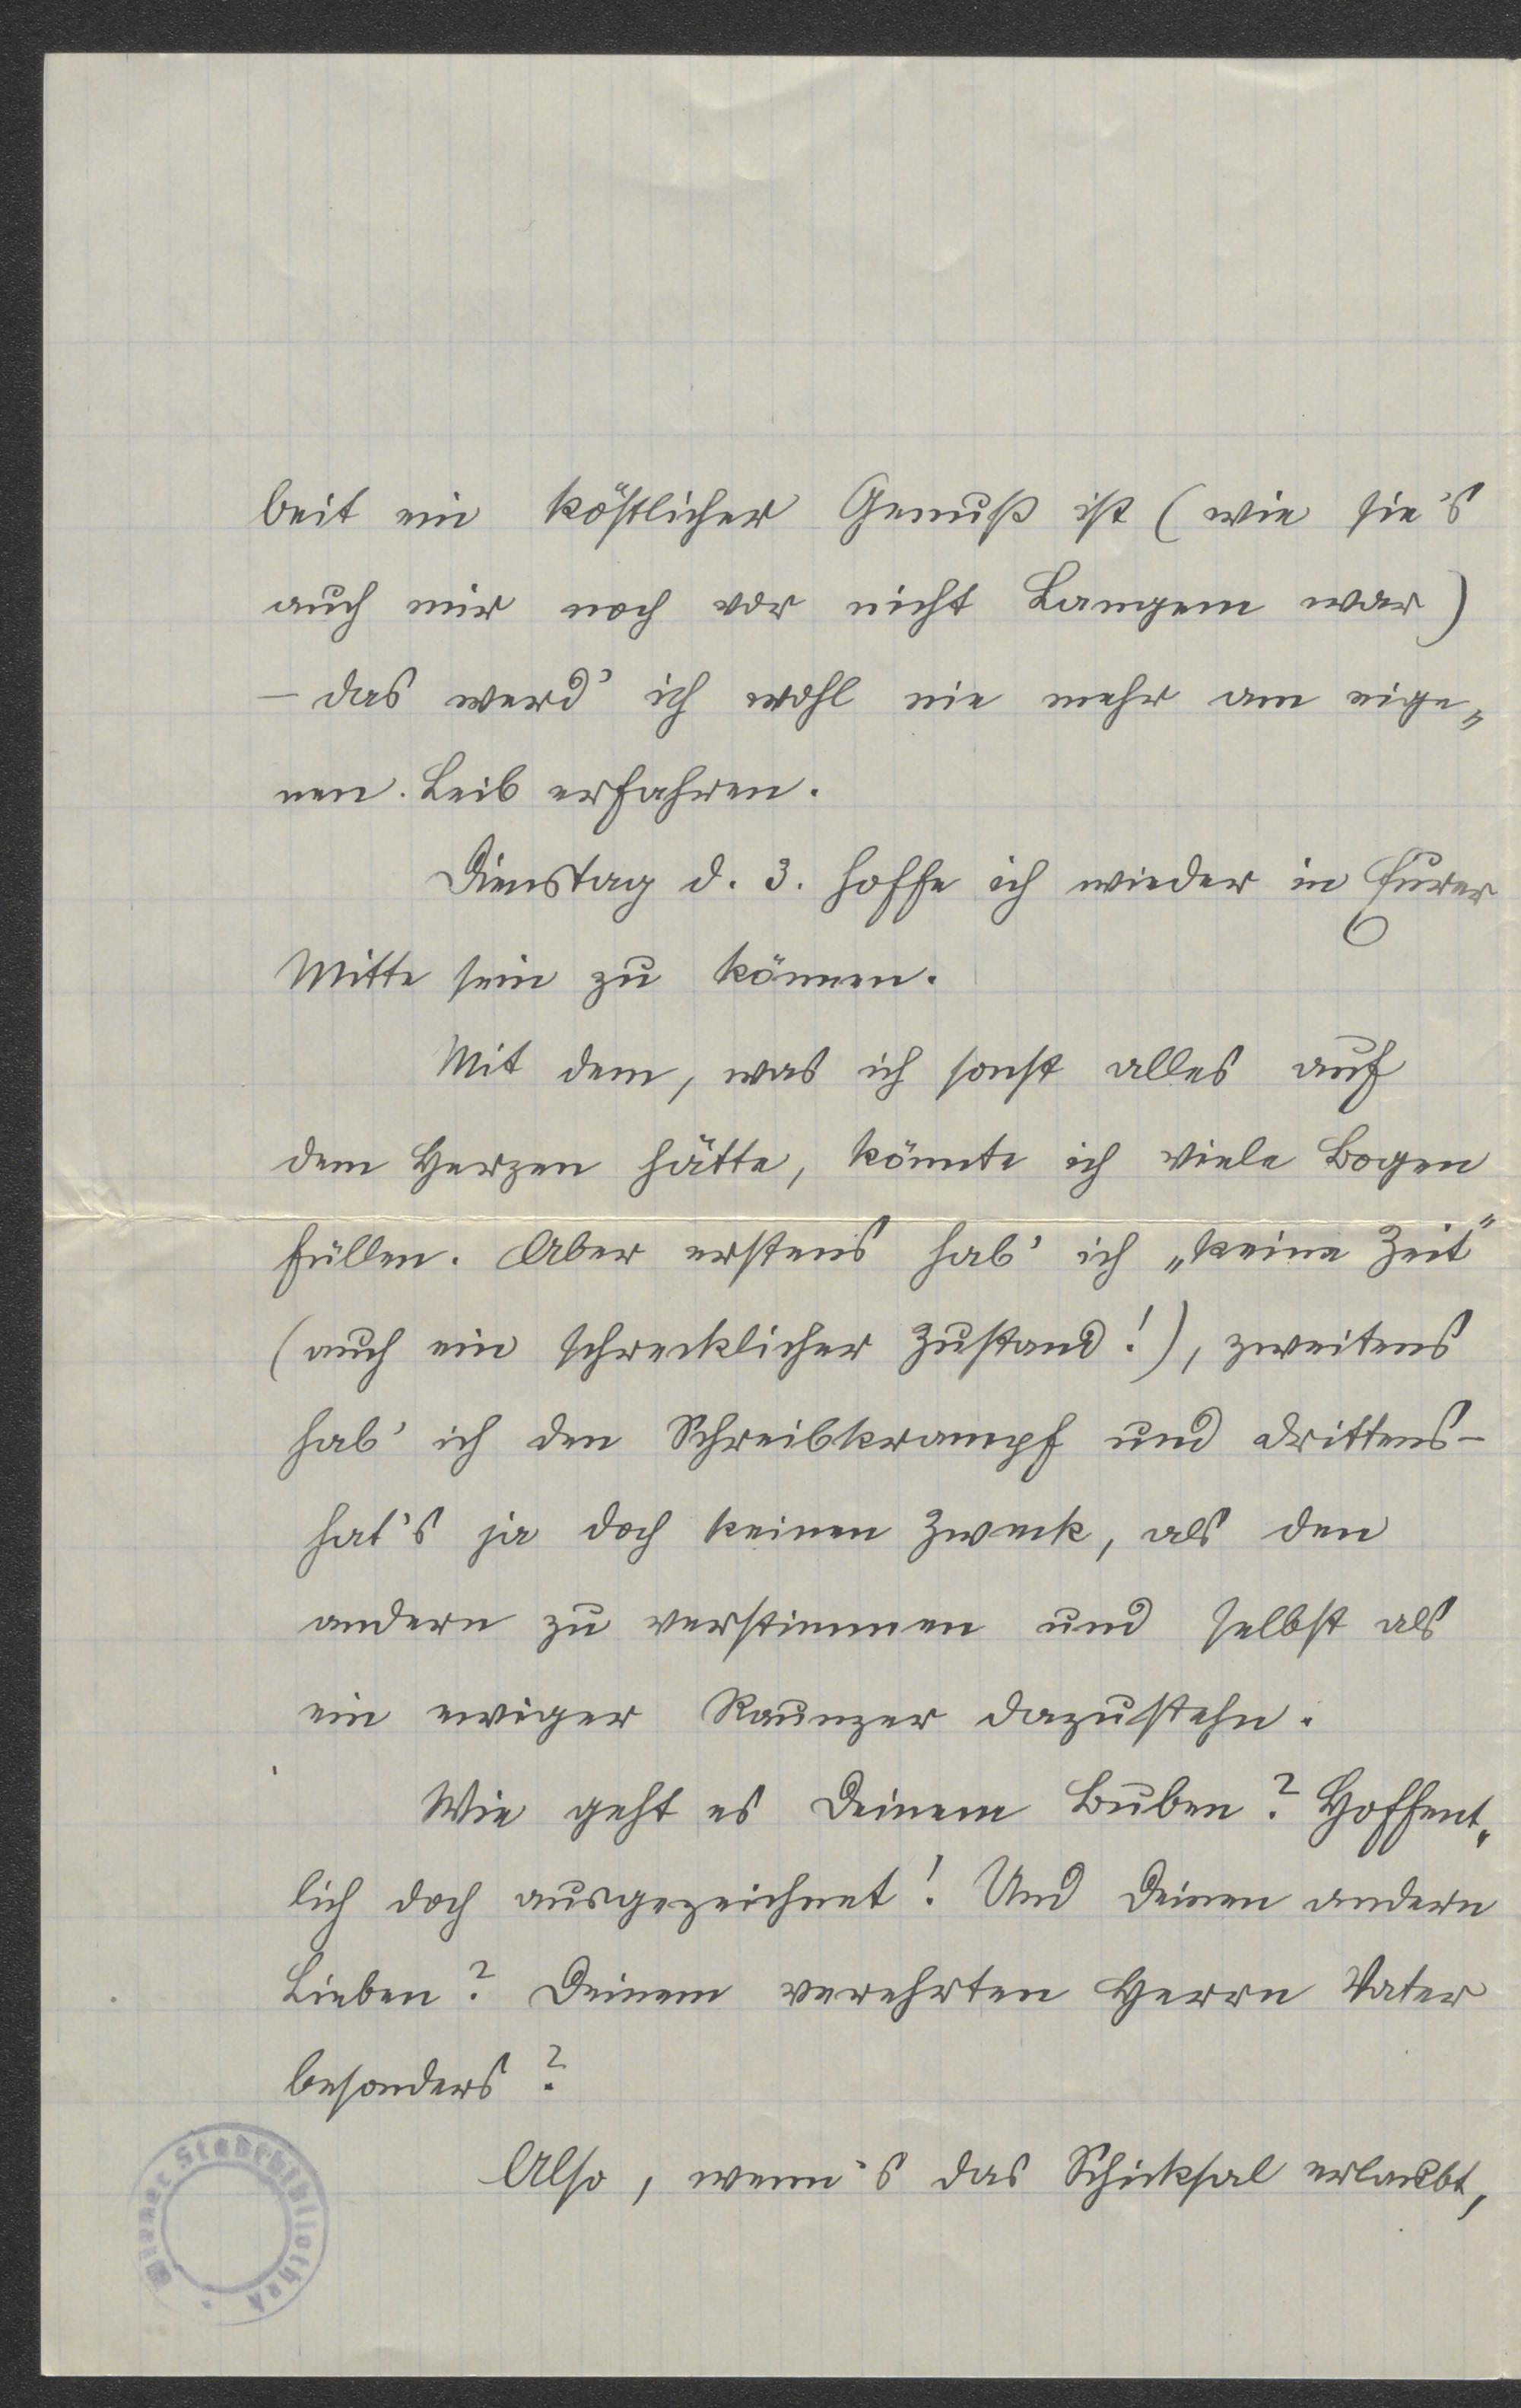 beit ein köstlicher Genuß ist (wie sie's
auch mir noch vor nicht Langem war)
– das werd' ich wohl nie mehr am eige„
nen Leib erfahren.
Dienstag d. 3. hoffe ich wieder in Eurer
Mitte sein zu können.
Mit dem, was ich sonst alles auf
dem Herzen hätte, könnte ich viele Bogen
füllen. Aber erstens hab' ich „keine Zeit"
(auch ein schrecklicher Zustand!), zweitens
hab' ich den Schreibkrampf und drittens –
hat's ja doch keinen Zweck, als den
andern zu verstimmen und selbst als
ein ewiger Raunzer dazustehn.
Wie geht es Deinem Buben? Hoffent„
lich doch ausgezeichnet! Und Deinen andern
Lieben? Deinem verehrten Herrn Vater
besonders?
Also, wenn's das Schicksal erlaubt,
Wiener Stadtbibliothek